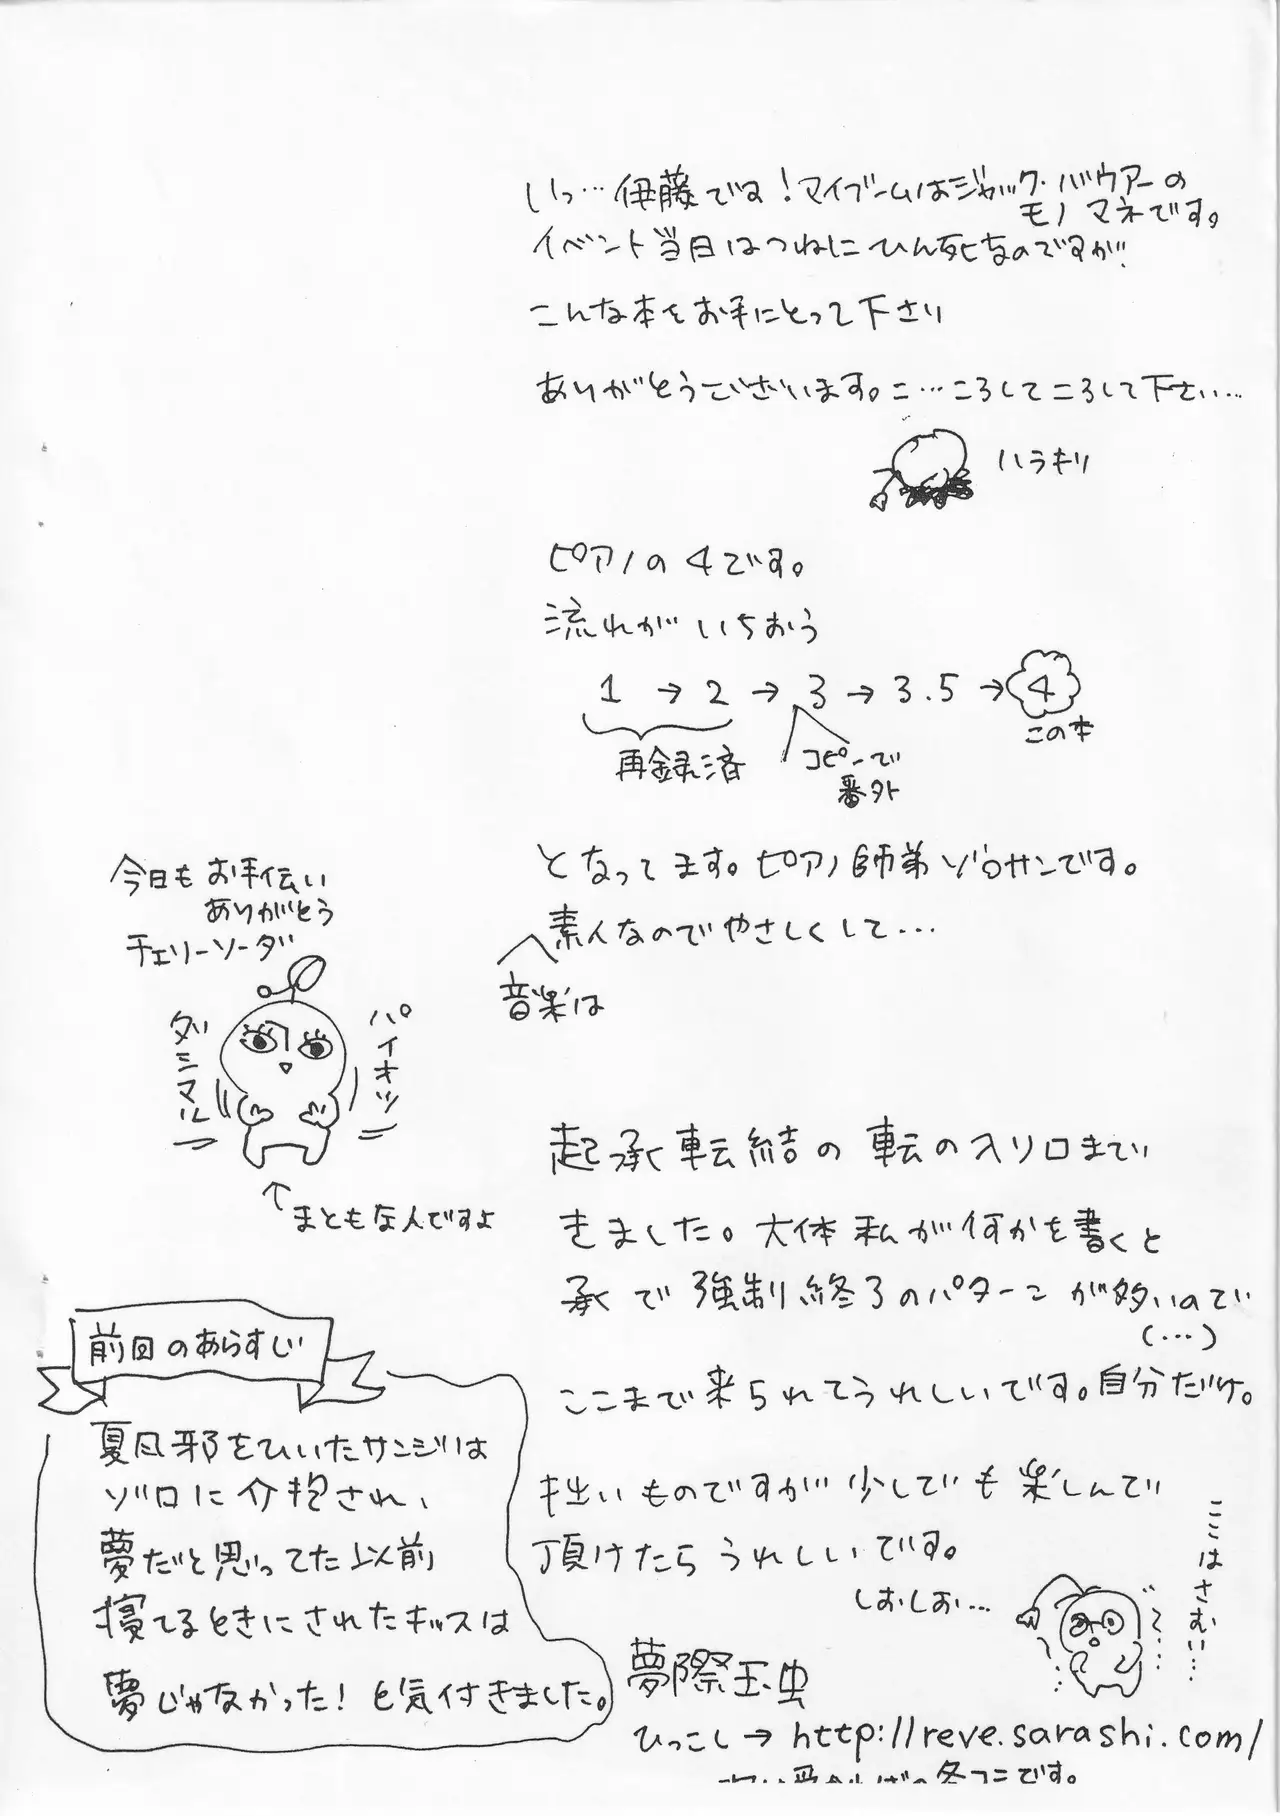 いっ…伊藤です！マイブームはジャック・バウアーの
モノマネです。
イベント当日はつねにひん死なのですが
こんな本をお手にとって下さり
ありがとうございます。こ…ころしてころして下さい…
ハラキリ
ピアノの4です。
流れがいちおう
1→2→3→3.5→4
この本
再録済
コピーで
番外
となってます。ピアノ師弟ゾロサンです。
素人なのでやさしくして…
音楽は
今日もお手伝い
ありがとう
チェリーソーダ
パイオツ
ダミマル
↑まともな人ですよ
起承転結の転の入り口まで
きました。大体私が何かを書くと
承で強制終了のパターンが多いので
(…)
ここまで来られてうれしいです。自分だけ。
拙いものですが少しでも楽しんで
頂けたらうれしいです。
しおしお…
ここはさむい…
前回のあらすじ
夏風邪をひいたサンジは
ゾロに介抱され、
夢だと思ってた以前
寝てるときにされたキッスは
夢じゃなかった！と気付きました。
夢際玉虫
ひっこし→http://reve.sarashi.com/